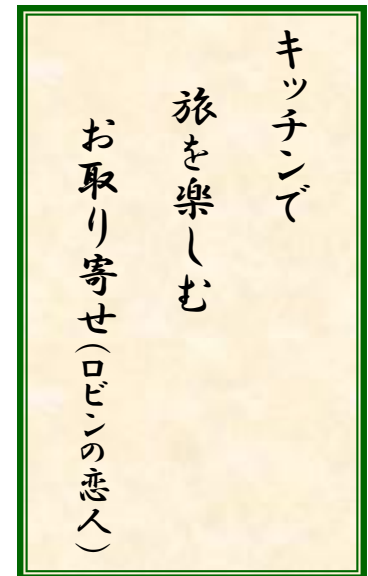 キッチンで
旅を楽しむ
お取り寄せ(ロビンの恋人)